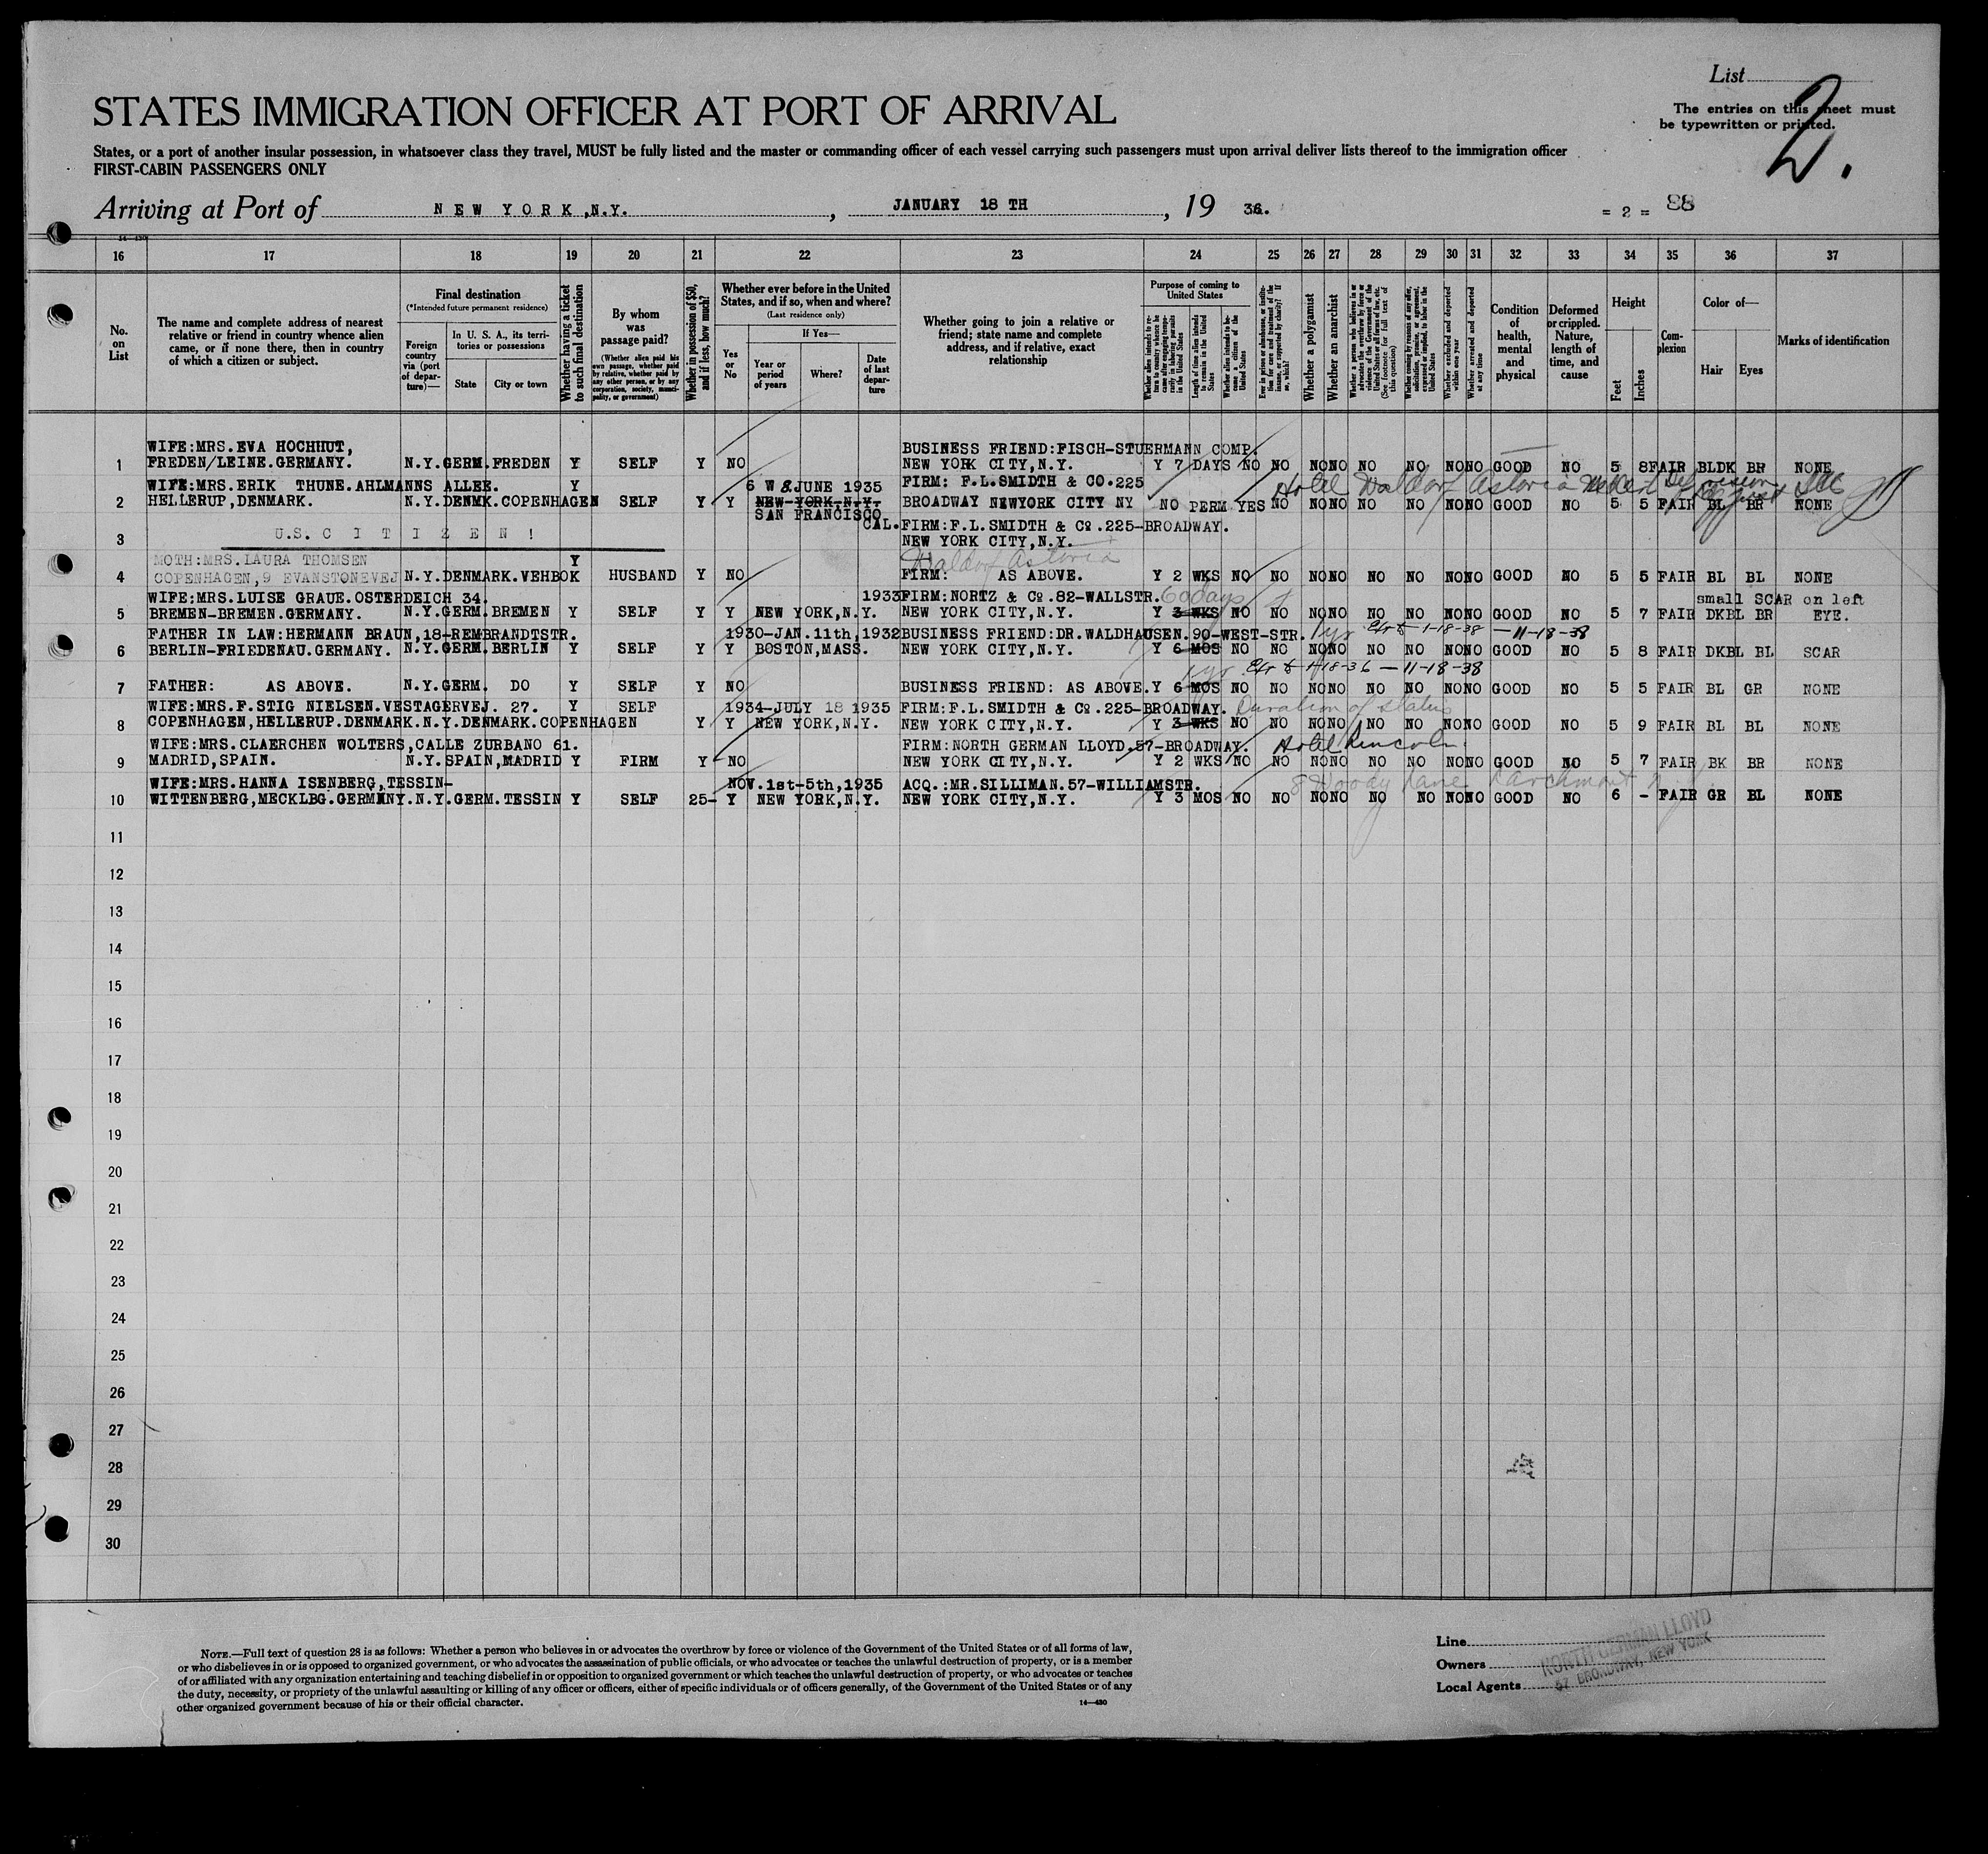 List
STATES IMMIGRATION OFFICER AT PORT OF ARRIVAL
The entries on this sheet must
be typewritten or printed.
2.
States, or a port of another insular possession, in whatsoever class they travel, MUST be fully listed and the master or commanding officer of each vessel carrying such passengers must upon arrival deliver lists thereof to the immigration officer
FIRST-CABIN PASSENGERS ONLY
Arriving at Port of NEW YORK,N.Y. , JANUARY 18 TH , 19 36. = 2 = 88
16 17 18 19 20 21 22 23 24 25 26 27 28 29 30 31 32 33 34 35 36 37
No. on List
The name and complete address of nearest relative or friend in country whence alien came, or if none there, then in country of which a citizen or subject.
Final destination
(*Intended future permanent residence)
Foreign country via (port of departure)—
In U. S. A., its territories or possessions
State
City or town
Whether having a ticket to such final destination
By whom was passage paid?
(Whether alien paid his own passage, whether paid by relative, whether paid by any other person, or by any corporation, society, municipality, or government)
Whether in possession of $50, and if less, how much?
Whether ever before in the United States, and if so, when and where?
(Last residence only)
Yes or No
If Yes—
Year or period of years
Where?
Date of last departure
Whether going to join a relative or friend; state name and complete address, and if relative, exact relationship
Purpose of coming to United States
Whether alien intends to return to country whence he came after engaging temporarily in laboring pursuits in the United States
Length of time alien intends to remain in the United States
Whether alien intends to become a citizen of the United States
Ever in prison or almshouse, or institution for care and treatment of the insane, or supported by charity? If so, which?
Whether a polygamist
Whether an anarchist
Whether a person who believes in or advocates the overthrow by force or violence of the Government of the United States or all forms of law, etc. (See footnote for full text of this question)
Whether coming by reasons of any offer, solicitation, promise, or agreement, expressed or implied, to labor in the United States
Whether excluded and deported within one year
Whether arrested and deported at any time
Condition of health, mental and physical
Deformed or crippled. Nature, length of time, and cause
Height
Feet
Inches
Complexion
Color of—
Hair
Eyes
Marks of identification
WIFE:MRS.EVA HOCHHUT, BUSINESS FRIEND:FISCH-STUERMANN COMP.
1 FREDEN/LEINE.GERMANY. N.Y.GERM.FREDEN Y SELF Y NO NEW YORK CITY,N.Y. Y 7 DAYS NO NO NO NO NO NO NO NO GOOD NO 5 8 FAIR BLDK BR NONE
WIFE:MRS.ERIK THUNE.AHLMANNS ALLEE. Y 6 W &.JUNE 1935 FIRM: F.L.SMIDTH & CO.225 Hotel Waldorf Astoria
2 HELLERUP,DENMARK. N.Y.DENMK.COPENHAGEN SELF Y Y NEW YORK,N.Y. BROADWAY NEWYORK CITY NY NO PERM YES NO NO NO NO NO NO NO GOOD NO 5 5 FAIR BL BR NONE
SAN FRANCISCO CAL.
U.S. C I T I Z E N ! FIRM:F.L.SMIDTH & Co.225-BROADWAY.
3 NEW YORK CITY,N.Y.
MOTH:MRS.LAURA THOMSEN Y Waldorf Astoria
4 COPENHAGEN,9 EVANSTONEVEJ N.Y.DENMARK.VEHBOK HUSBAND Y NO FIRM: AS ABOVE. Y 2 WKS NO NO NO NO NO NO NO NO GOOD NO 5 5 FAIR BL BL NONE
WIFE:MRS.LUISE GRAUE.OSTERDEICH 34. 1933 FIRM:NORTZ & Co.82-WALLSTR. 60 days small SCAR on left
5 BREMEN-BREMEN.GERMANY. N.Y.GERM.BREMEN Y SELF Y Y NEW YORK,N.Y. NEW YORK CITY,N.Y. Y 3 WKS NO NO NO NO NO NO NO NO GOOD NO 5 7 FAIR DKBL BR EYE.
FATHER IN LAW:HERMANN BRAUN,18-REMBRANDTSTR. 1930-JAN.11th,1932 BUSINESS FRIEND:DR.WALDHAUSEN.90-WEST-STR. 1 yr 1-18-38 — 11-18-38
6 BERLIN-FRIEDENAU.GERMANY. N.Y.GERM.BERLIN Y SELF Y Y BOSTON,MASS. NEW YORK CITY,N.Y. Y 6 MOS NO NO NO NO NO NO NO NO GOOD NO 5 8 FAIR DKBL BL SCAR
1 yr 1-18-36 — 11-18-38
7 FATHER: AS ABOVE. N.Y.GERM. DO Y SELF Y NO BUSINESS FRIEND: AS ABOVE. Y 6 MOS NO NO NO NO NO NO NO NO GOOD NO 5 5 FAIR BL GR NONE
WIFE:MRS.F.STIG NIELSEN.VESTAGERVEJ. 27. Y SELF 1934-JULY 18 1935 FIRM:F.L.SMIDTH & Co.225-BROADWAY. Duration of status
8 COPENHAGEN,HELLERUP.DENMARK.N.Y.DENMARK.COPENHAGEN Y Y NEW YORK,N.Y. NEW YORK CITY,N.Y. Y 3 WKS NO NO NO NO NO NO NO NO GOOD NO 5 9 FAIR BL BL NONE
WIFE:MRS.CLAERCHEN WOLTERS,CALLE ZURBANO 61. FIRM:NORTH GERMAN LLOYD.57-BROADWAY. Hotel Lincoln
9 MADRID,SPAIN. N.Y.SPAIN,MADRID Y FIRM Y NO NEW YORK CITY,N.Y. Y 2 WKS NO NO NO NO NO NO NO NO GOOD NO 5 7 FAIR BK BR NONE
WIFE:MRS.HANNA ISENBERG,TESSIN- NOV.1st-5th,1935 ACQ.:MR.SILLIMAN.57-WILLIAMSTR. 8 Woody Lane Larchmont
10 WITTENBERG,MECKLBG.GERMANY.N.Y.GERM.TESSIN Y SELF 25- Y NEW YORK,N.Y. NEW YORK CITY,N.Y. Y 3 MOS NO NO NO NO NO NO NO NO GOOD NO 6 - FAIR GR BL NONE
11
12
13
14
15
16
17
18
19
20
21
22
23
24
25
26
27
28
29
30
NOTE.—Full text of question 28 is as follows: Whether a person who believes in or advocates the overthrow by force or violence of the Government of the United States or of all forms of law,
or who disbelieves in or is opposed to organized government, or who advocates the assassination of public officials, or who advocates or teaches the unlawful destruction of property, or is a member
of or affiliated with any organization entertaining and teaching disbelief in or opposition to organized government or which teaches the unlawful destruction of property, or who advocates or teaches
the duty, necessity, or propriety of the unlawful assaulting or killing of any officer or officers, either of specific individuals or of officers generally, of the Government of the United States or of any
other organized government because of his or their official character.
14—430
Line
Owners
Local Agents
NORTH GERMAN LLOYD
57 BROADWAY, NEW YORK